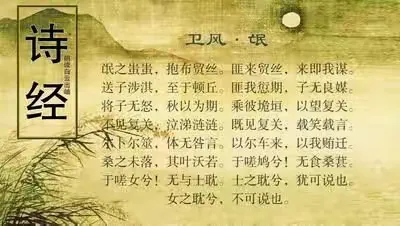 诗经
卫风·氓
氓之蚩蚩，抱布贸丝。匪来贸丝，来即我谋。
送子涉淇，至于顿丘。匪我愆期，子无良媒。
将子无怒，秋以为期。乘彼垝垣，以望复关。
不见复关，泣涕涟涟。既见复关，载笑载言。
尔卜尔筮，体无咎言。以尔车来，以我贿迁。
桑之未落，其叶沃若。于嗟鸠兮！无食桑葚。
于嗟女兮！无与士耽。士之耽兮，犹可说也。
女之耽兮，不可说也。